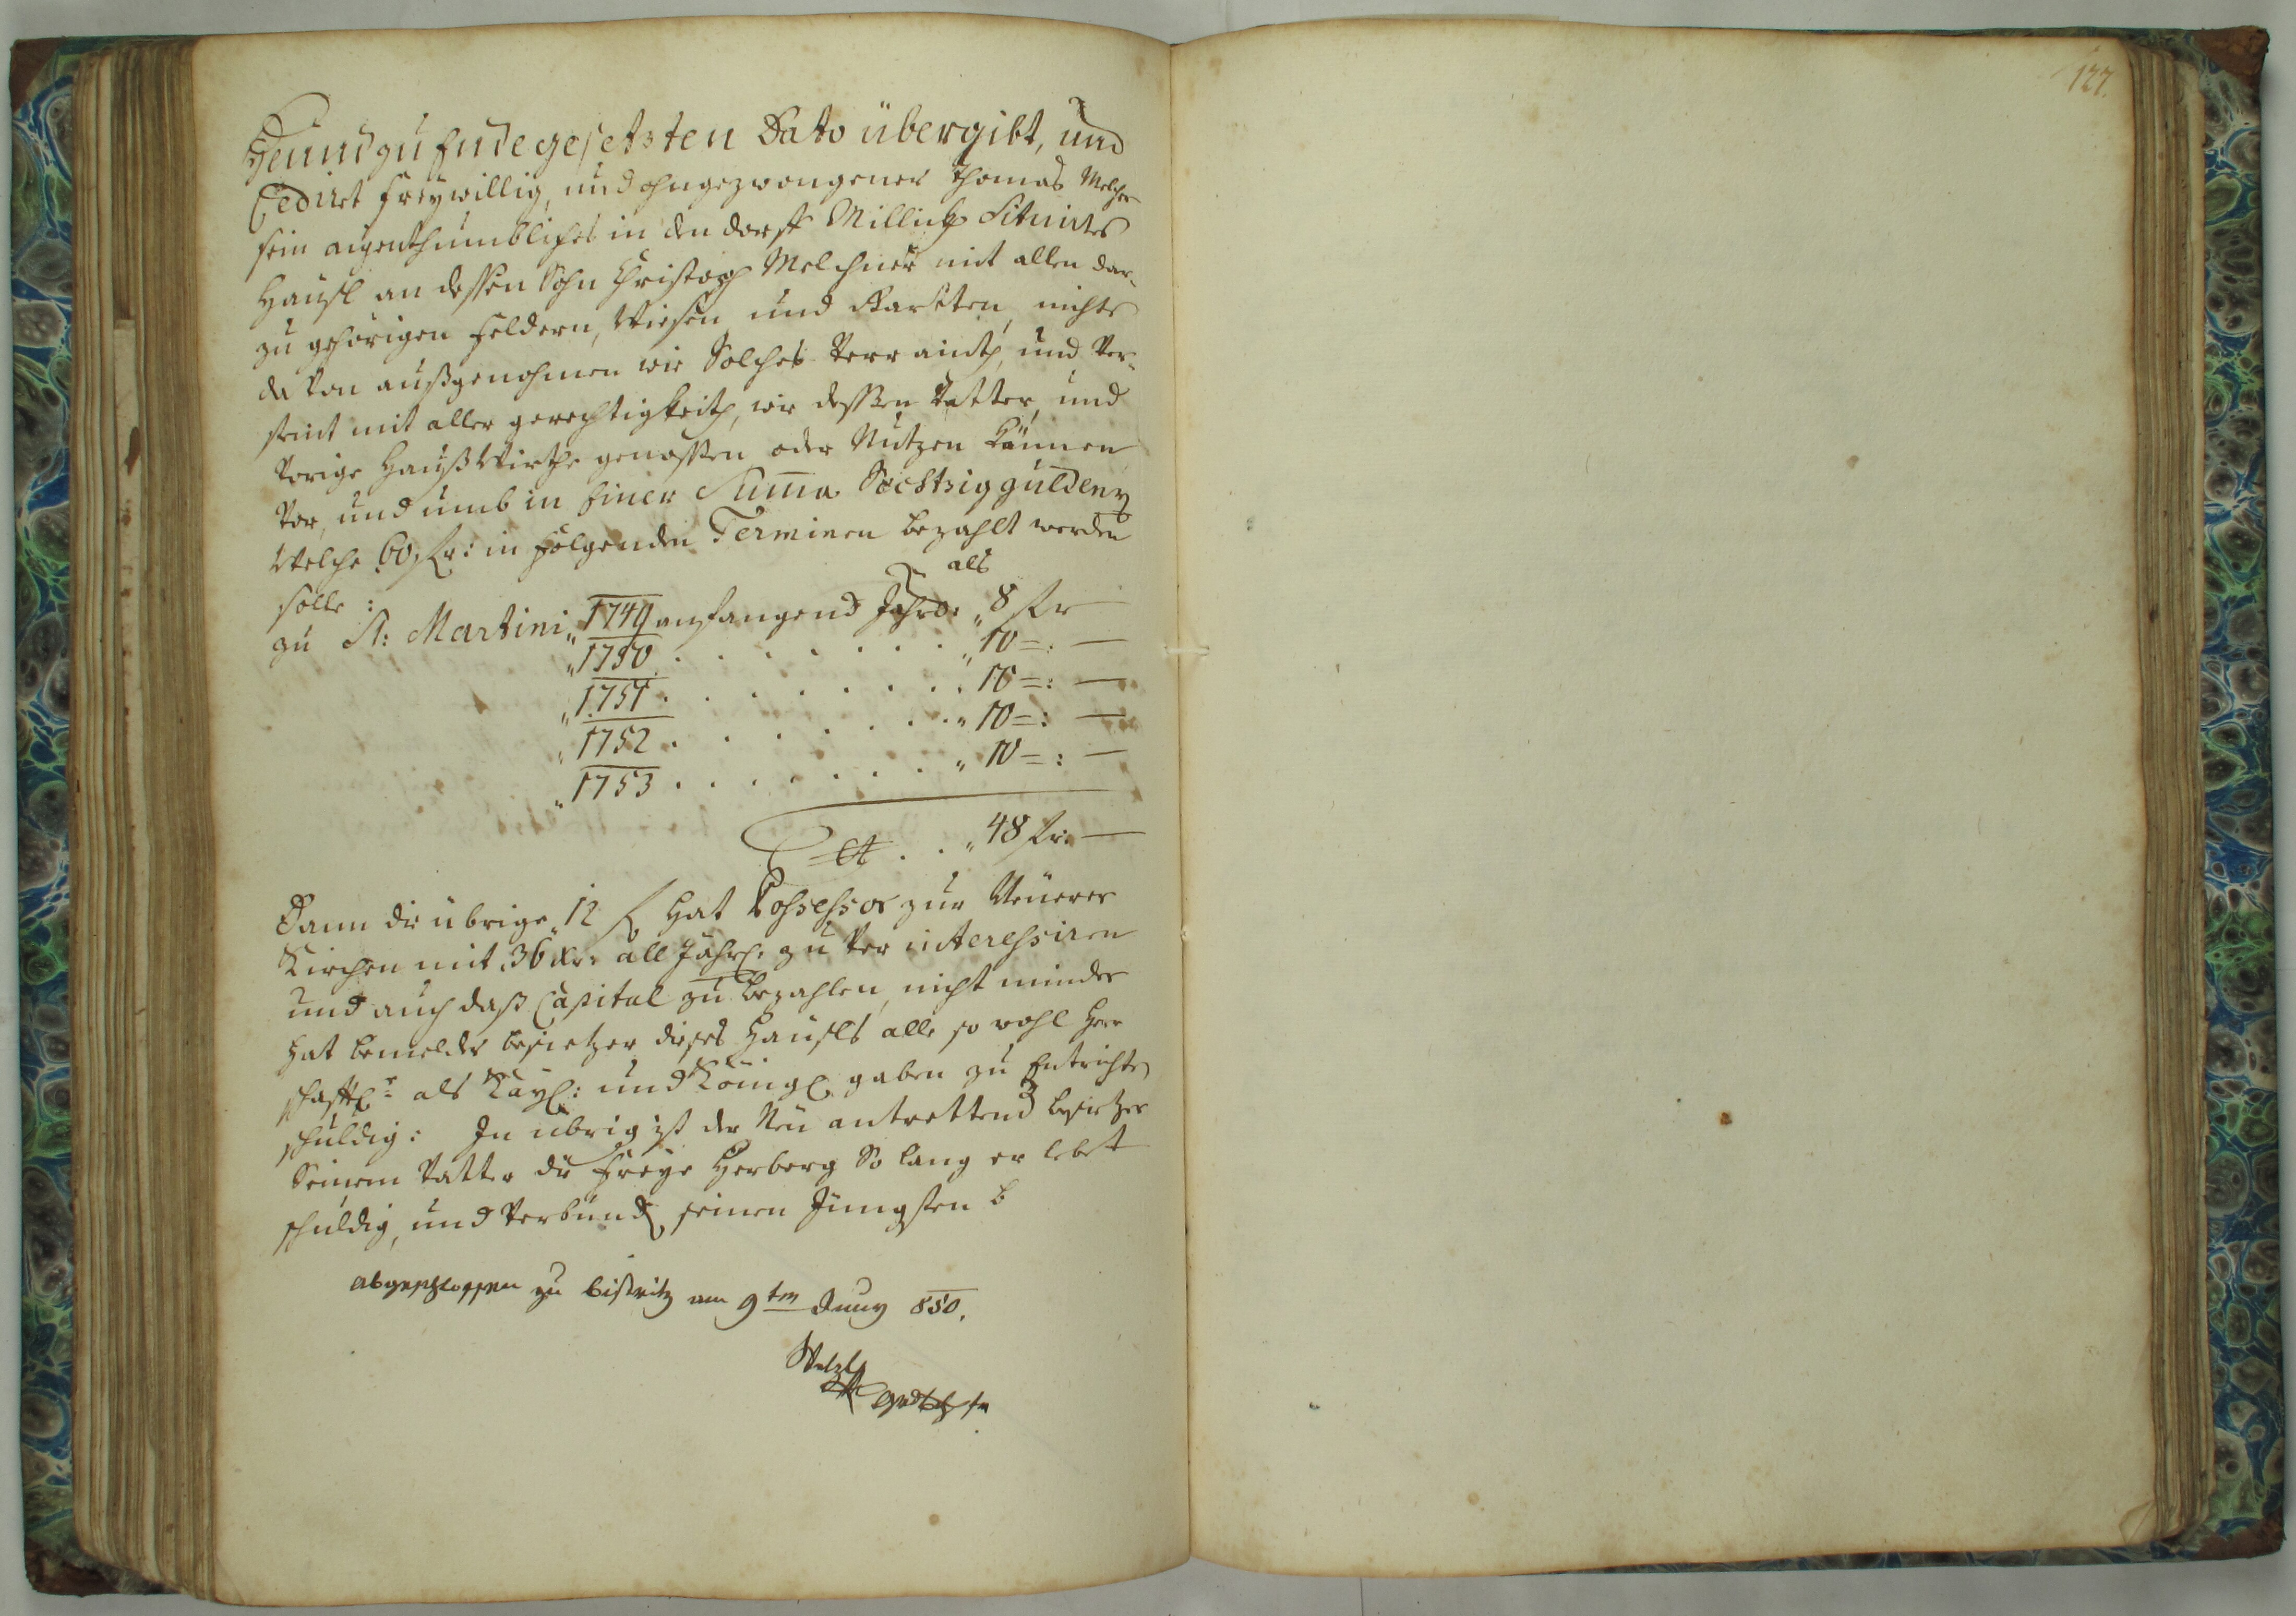 Heund zu Ende gesetzten Dato übergibt, und
Cedirt freywillig, und ohngezwongener Thomas Melchner
sein aigenthumbliches in den dorff Millick Situirtes
Häusl an dessen Sohn Christoph Melchner mit allen dar-
zu gehörigen Feldern, Wiesen und Gartten, nichts
da von außgenohmen wie Solches Verrainth, und Ver-
steint mit aller gerechtigkeith, wie dessen Vatter, und
Vorige Haußwirthe genossen oder Nutzen können
Vor, und umb in Einer Summa Sechtzig gulden,
Welche 60 fr: in folgenden Terminen bezahlt werden
solle: als
zu St: Martini „ 1749 anfangend Jahrs: „ 8 fr —
„ 1750 . . . . . . . „ 10 =: —
„ 1751 . . . . . . . „ 10 =: —
„ 1752 . . . . . . . „ 10 =: —
„ 1753 . . . . . . . „ 10 =: —
. . „ 48 fr: —
Dann die übrige „ 12 f hat Possessor zur Neüerer
Kirchen mit 36 xr: all Jährl: zu Ver interessiren
und auch daß Capital zu bezahlen, nicht minder
hat bemelder besietzer dieses Häusls alle so wohl Herr
schafftl: als Kayl: und Königl gaben zu Entrichten
schuldig: In übrig ist der Neü antrettend besietzer
Seinem Vatter die Freye Herberg So lang er lebet
schuldig, und Verbund, seinen Jüngsten b
abgeschlossen zu Bistritz am 9ten Juny 850.
Welzl
127.